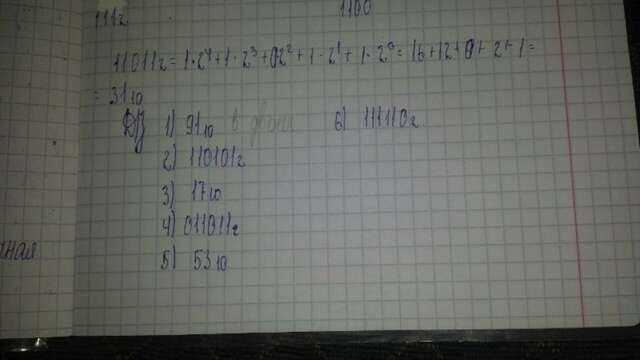 111₂ 1100
11011₂ = 1·2⁴+1·2³+0·2²+1·2¹+1·2⁰ = 16+12+0+2+1=
= 31₁₀
Д/З 1) 91₁₀ в двоич 6) 111110₂
2) 110101₂
3) 17₁₀
4) 011011₂
чная
5) 53₁₀